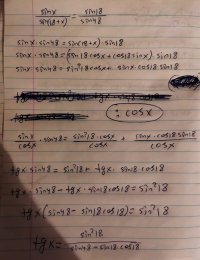 sinx / sin(18+x) = sin18 / sin48
sinx · sin48 = sin(18+x) · sin18
sinx · sin48 = (sin18 cosx + cos18 sinx) · sin18
sinx · sin48 = sin²18 cosx + sinx · cos18 sin18
: cosx
sinx / cosx · sin48 = sin²18 · cosx / cosx + sinx · cos18 sin18 / cosx
tgx · sin48 = sin²18 + tgx · sin18 cos18
tgx · sin48 - tgx · sin18 cos18 = sin²18
tgx (sin48 - sin18 cos18) = sin²18
tgx = sin²18 / sin48 - sin18 cos18